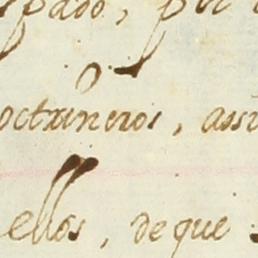 pado, por
octrineros, assi
ellos, de que